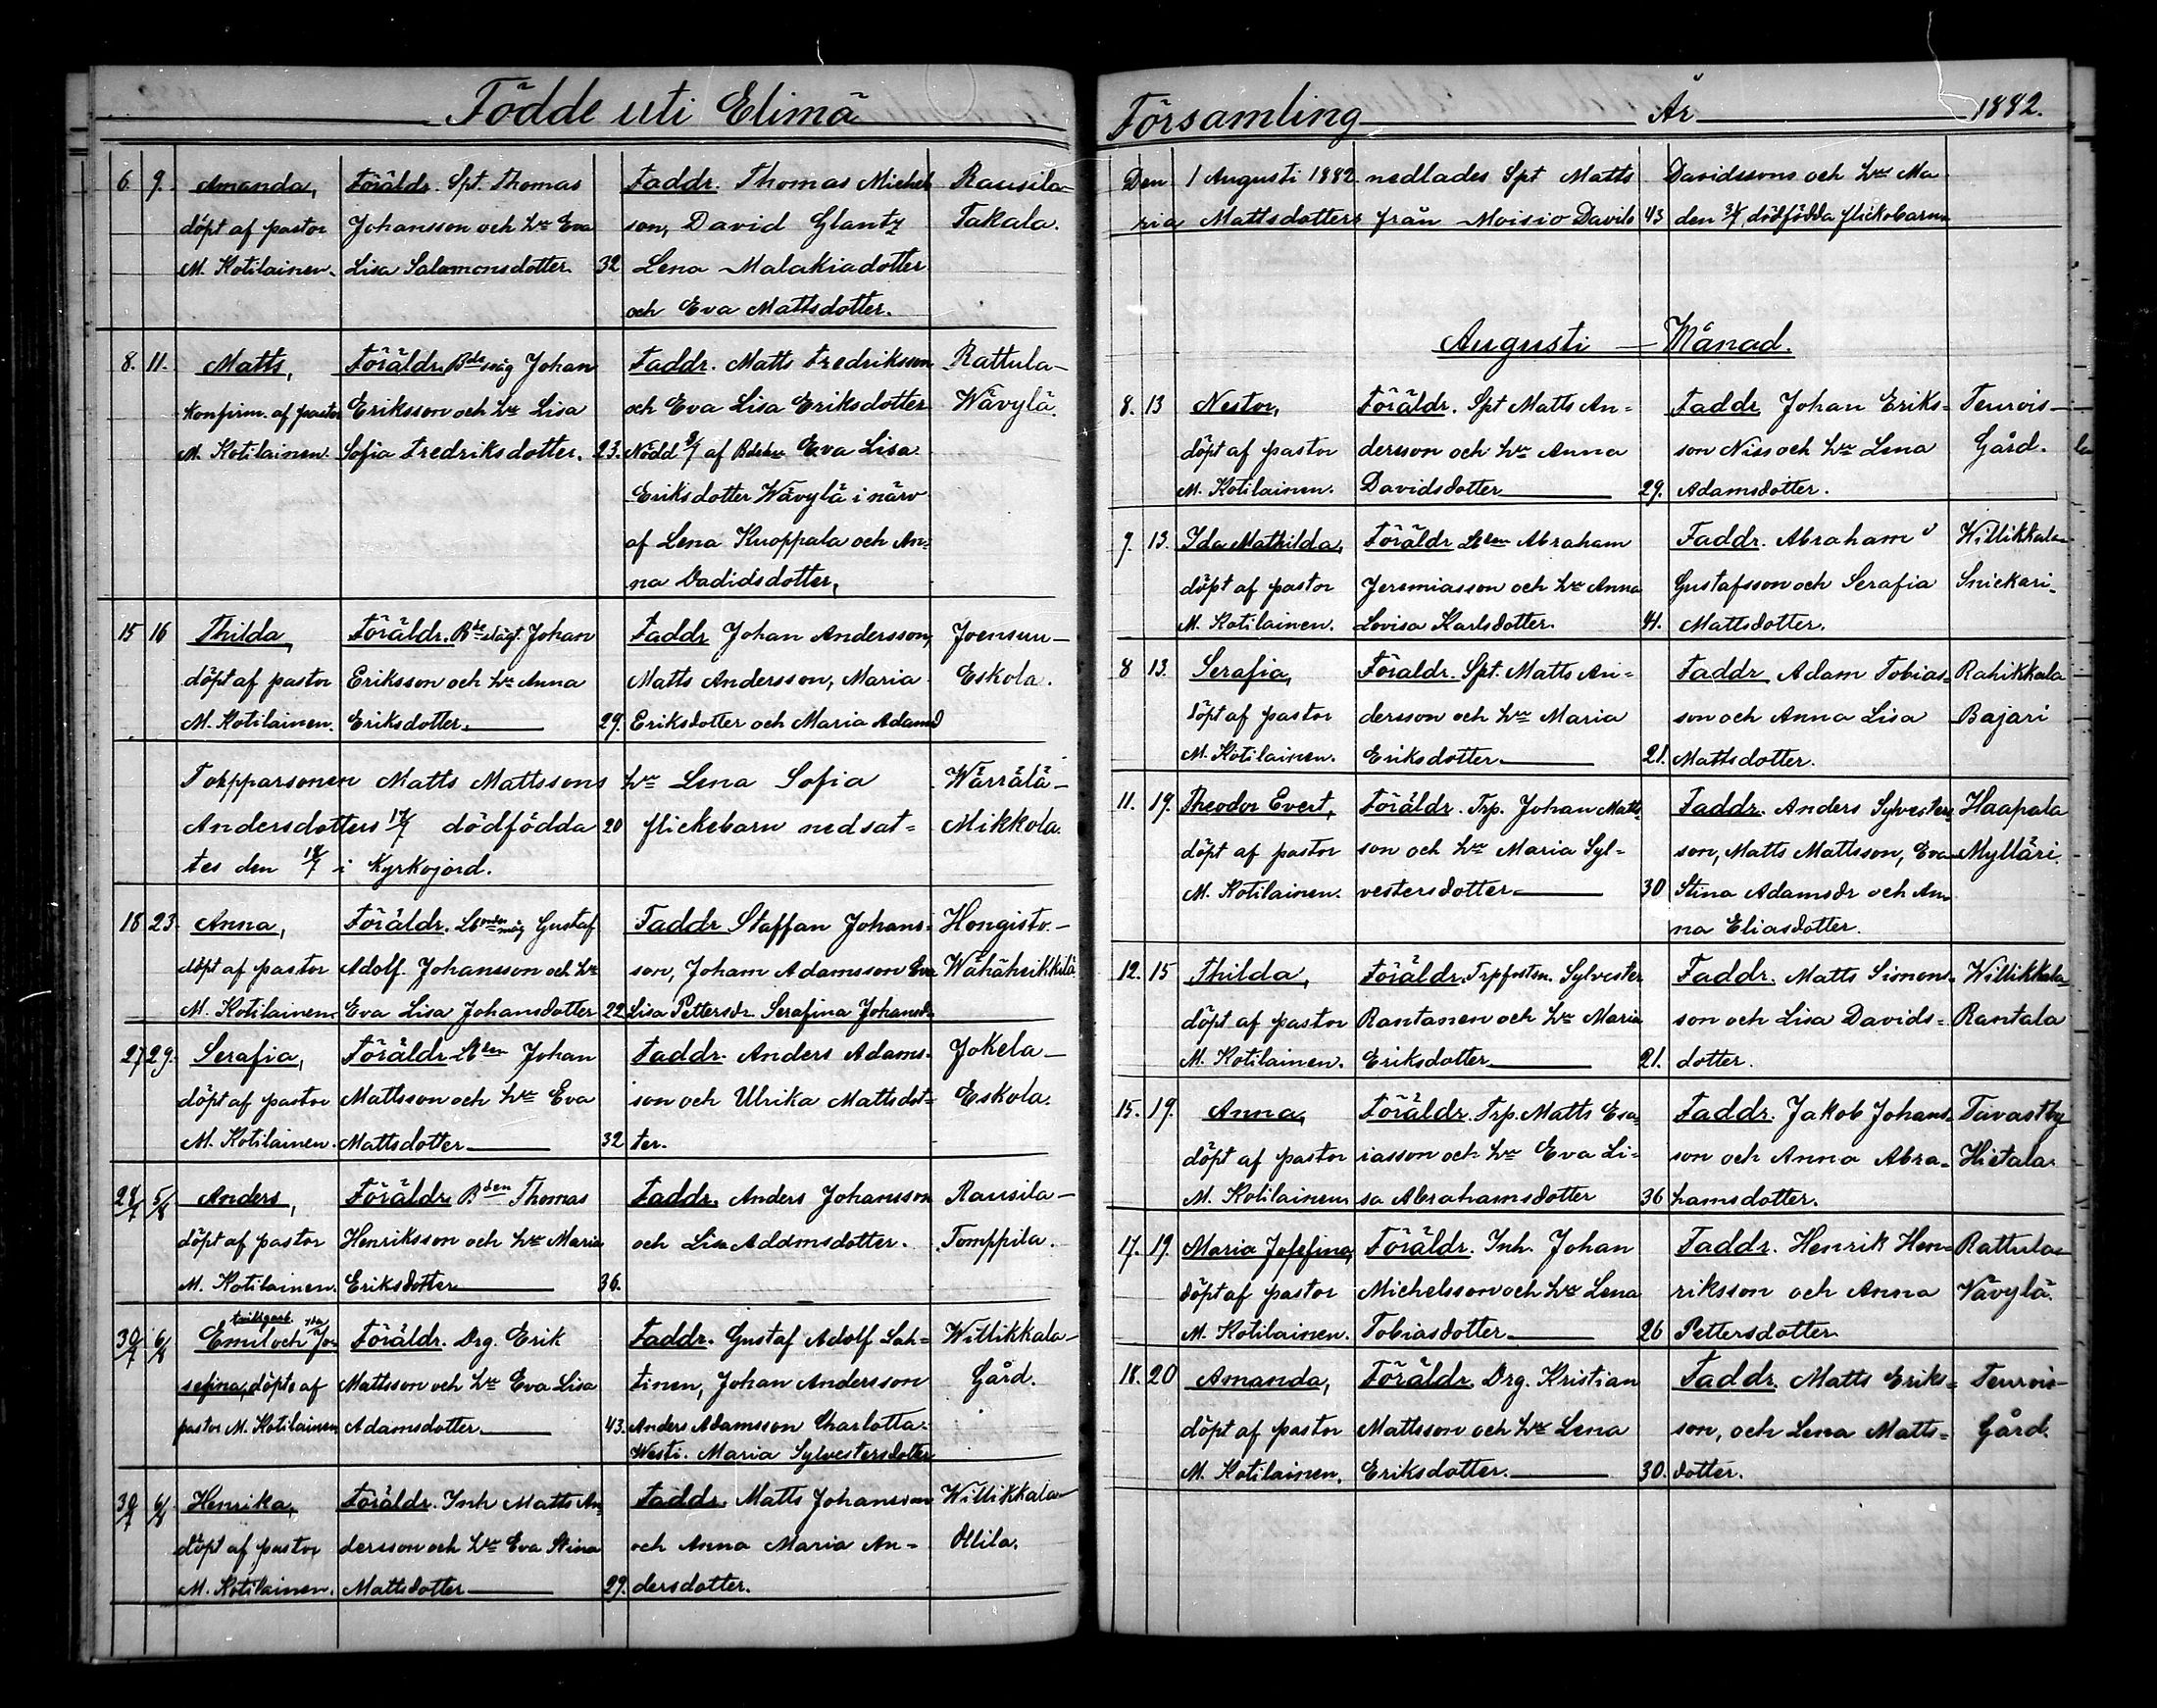 Födde uti Elimä
6. 9. Amanda, Föräldr. Spt. Thomas Faddr. Thomas Michel- Rausila-
döpt af pastor Johansson och hu Eva son, David Glantz Takala.
M. Kotilainen. Lisa Salamonsdotter. 32 Lena Malakiadotter
och Eva Mattsdotter.
8. 11. Matts, Föräldr. Bdemåg Johan Faddr. Matts Fredriksson Rattula-
Konfirm. af pastor Eriksson och hu Lisa och Eva Lisa Eriksdotter Wävylä.
M. Kotilainen. Sofia Fredriksdotter. 23. Nödd 8/7 af Bdehu Eva Lisa
Eriksdotter Wävylä i närv
af Lena Kuoppala och An-
na Dadidsdotter,
15 16 Thilda, Föräldr. Bdemågt. Johan Faddr Johan Andersson, Joensuu-
döpt af pastor Eriksson och hu Anna Matts Andersson, Maria Eskola.
M. Kotilainen. Eriksdotter. 29. Eriksdotter och Maria Adamsd
Torpparsonen Matts Mattssons hu Lena Sofia Wärrälä-
Andersdotters 17/7 dödfödda 20 flickebarn nedsat- Mikkola.
tes den 18/7 i Kyrkojord.
18 23. Anna, Föräldr. Lbondemåg Gustaf Faddr Staffan Johans- Hongisto-
döpt af pastor Adolf Johansson och hu son, Johan Adamsson Eva Wähährikkilä
M. Kotilainen. Eva Lisa Johansdotter 22 Lisa Pettersdr Serafina Johansdr
27. 29. Serafia, Föräldr Lbden Johan Faddr. Anders Adams- Jokela-
döpt af pastor Mattsson och hu Eva son och Ulrika Mattsdot- Eskola.
M. Kotilainen. Mattsdotter 32 ter.
28/7 5/8 Anders, Föräldr. Bden Thomas Faddr. Anders Johansson Rausila-
döpt af pastor Henriksson och hu Maria och Lisa Adamsdotter. Tomppila.
M. Kotilainen. Eriksdotter 36.
30/7 6/8 Emil och Jo- Föräldr. Drg. Erik Faddr. Gustaf Adolf Lah- Willikkala-
sefina, döpte af Mattsson och hu Eva Lisa tinen, Johan Andersson Gård.
pastor M. Kotilainen Adamsdotter. 43. Anders Adamsson Charlotta
Westi. Maria Sylvestersdotter
30/7 6/8 Henrika, Föräldr. Inh Matts An- Faddr. Matts Johansson Willikkala-
döpt af pastor dersson och hu Eva Stina och Anna Maria An- Ollila.
M. Kotilainen. Mattsdotter 29. dersdotter.
Församling År 1882.
Den 1 Augusti 1882 nedlades Spt Matts Davidssons och hus Ma
ria Mattsdotters från Moisio Davila 43 den 31/7 dödfödda flickobarn
Augusti - Månad.
8. 13 Nestor, Föräldr. Spt Matts An- Faddr Johan Eriks- Teurois-
döpt af pastor dersson och hu Anna son Niss och hu Lena Gård.
M. Kotilainen. Davidsdotter 29. Adamsdotter.
9. 13. Ida Mathilda, Föräldr Lbden Abraham Faddr. Abraham Willikkala-
döpt af pastor Jeremiasson och hu Anna Gustafsson och Serafia Snickari.
M. Kotilainen. Lovisa Karlsdotter. 41. Mattsdotter.
8 13. Serafia, Föräldr. Spt. Matts An- Faddr Adam Tobias- Rahikkala
döpt af pastor dersson och hu Maria son och Anna Lisa Bajari
M. Kotilainen. Eriksdotter. 21. Mattsdotter.
11. 19. Theodor Evert, Föräldr. Trp. Johan Matts- Faddr. Anders Sylvesters- Haapala
döpt af pastor son och hu Maria Syl- son, Matts Mattsson, Eva Mylläri.
M. Kotilainen. vestersdotter. 30 Stina Adamsdr och An-
na Eliasdotter.
12. 15 Thilda, Föräldr. Trpfosten. Sylvester Faddr. Matts Simons- Willikkala-
döpt af pastor Rantanen och hu Maria son och Lisa Davids- Rantala
M. Kotilainen. Eriksdotter 21. dotter.
15. 19. Anna, Föräldr. Trp. Matts Esa- Faddr. Jakob Johans- Tavastby
döpt af pastor iasson och hu Eva Li- son och Anna Abra- Hietala.
M. Kotilainen sa Abrahamsdotter 36 hamsdotter.
17. 19. Maria Josefina, Föräldr. Inh. Johan Faddr. Henrik Hen- Rattula-
döpt af pastor Michelsson och hu Lena riksson och Anna Wävylä.
M. Kotilainen. Tobiasdotter. 26 Pettersdotter.
18. 20 Amanda, Föräldr. Drg. Kristian Faddr. Matts Eriks- Teurois-
döpt af pastor Mattsson och hu Lena son, och Lena Matts- Gård.
M. Kotilainen. Eriksdotter. 30. dotter.